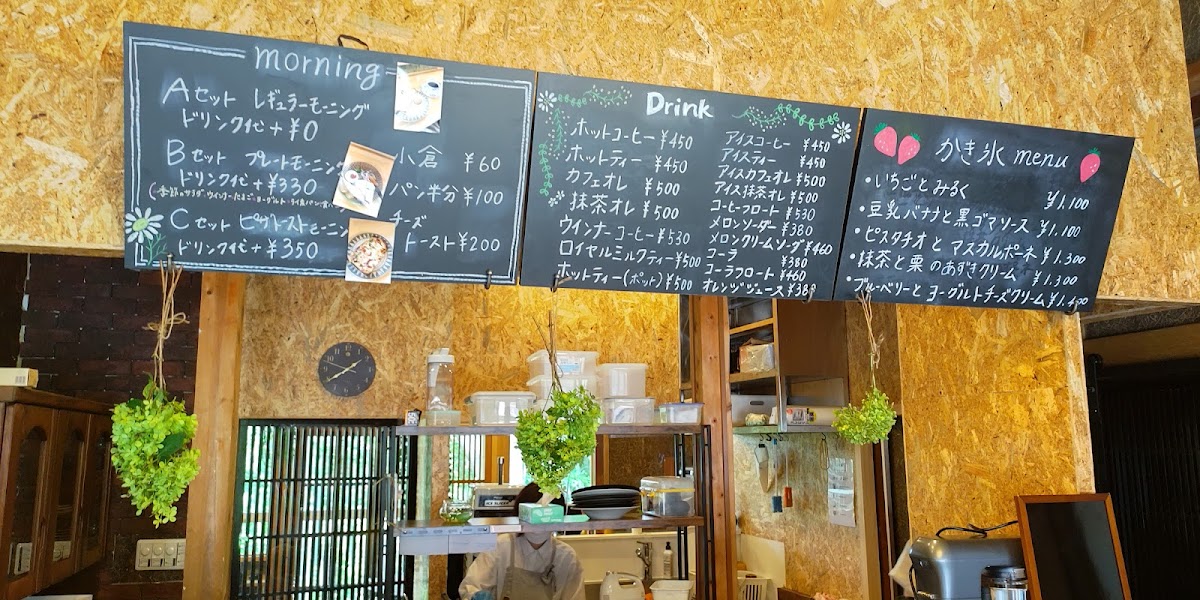 morning
Aセット レギュラーモーニング
ドリンク代+¥0
Bセット プレートモーニング
ドリンク代+¥330
Cセット ピザトーストモーニング
ドリンク代+¥350
小倉 ¥60
パン半分 ¥100
チーズ
トースト ¥200
Drink
ホットコーヒー ¥450
ホットティー ¥450
カフェオレ ¥500
抹茶オレ ¥500
ウインナーコーヒー ¥530
ロイヤルミルクティー ¥500
ホットティー(ポット) ¥500
アイスコーヒー ¥450
アイスティー ¥450
アイスカフェオレ ¥500
アイス抹茶オレ ¥500
コーヒーフロート ¥530
メロンソーダー ¥380
メロンクリームソーダ ¥460
コーラ ¥380
コーラフロート ¥460
オレンジジュース ¥380
かき氷 menu
・いちごとみるく ¥1,100
・豆乳バナナと黒ゴマソース ¥1,100
・ピスタチオとマスカルポーネ ¥1,300
・抹茶と栗のあずきクリーム ¥1,300
・ブルーベリーとヨーグルトチーズクリーム ¥1,400